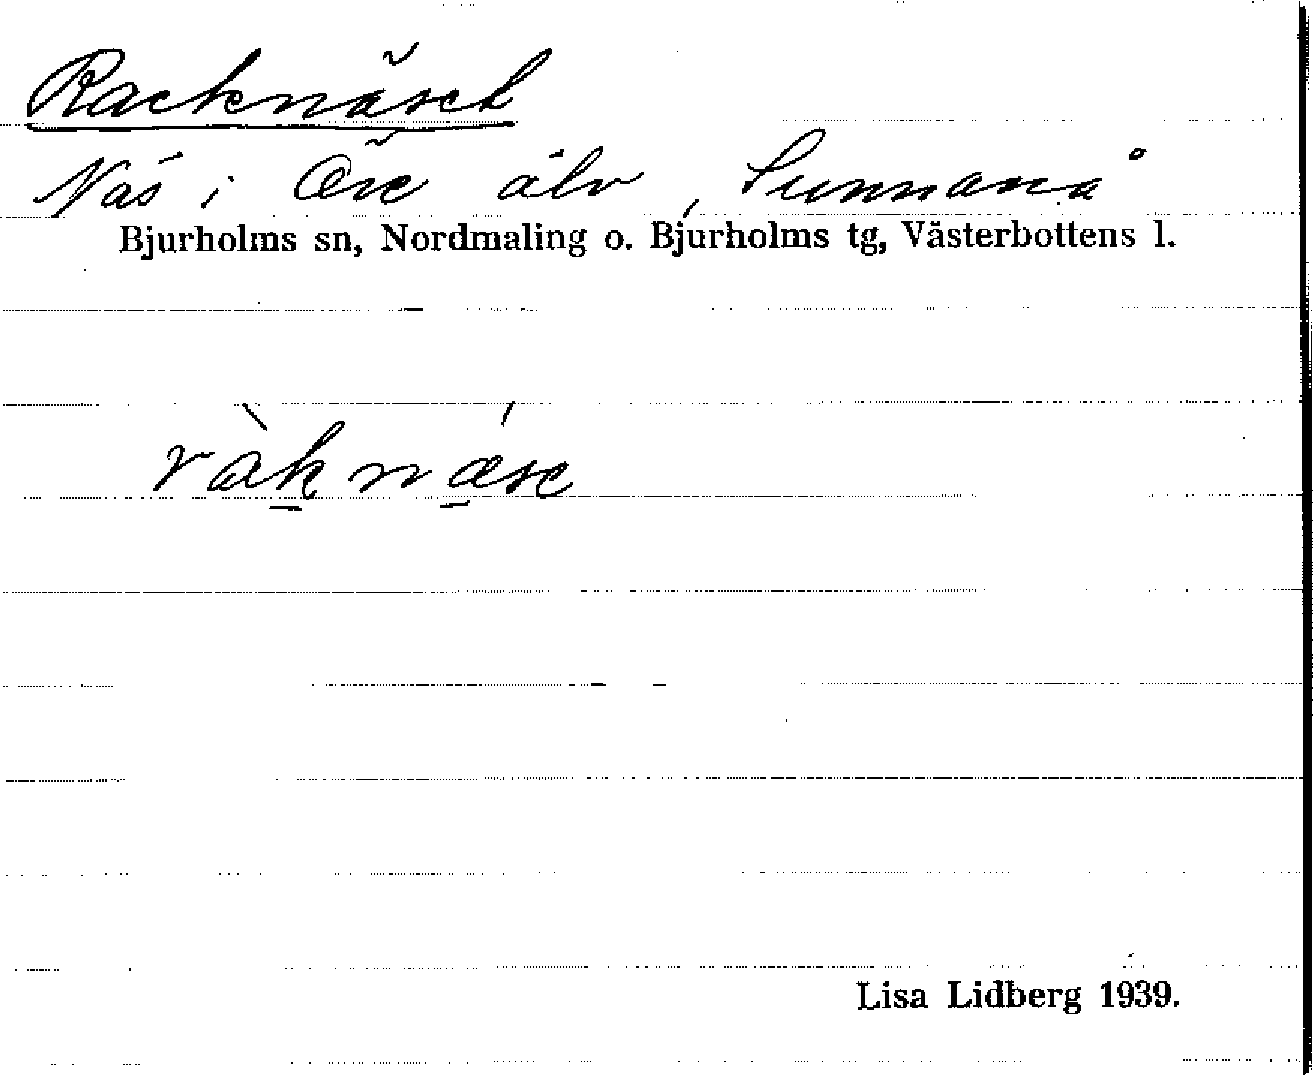 Racknäset
Näs i Öre älv, Sunnanå
Bjurholms sn, Nordmaling o. Bjurholms tg, Västerbottens l.
ràknǽse
Lisa Lidberg 1939.